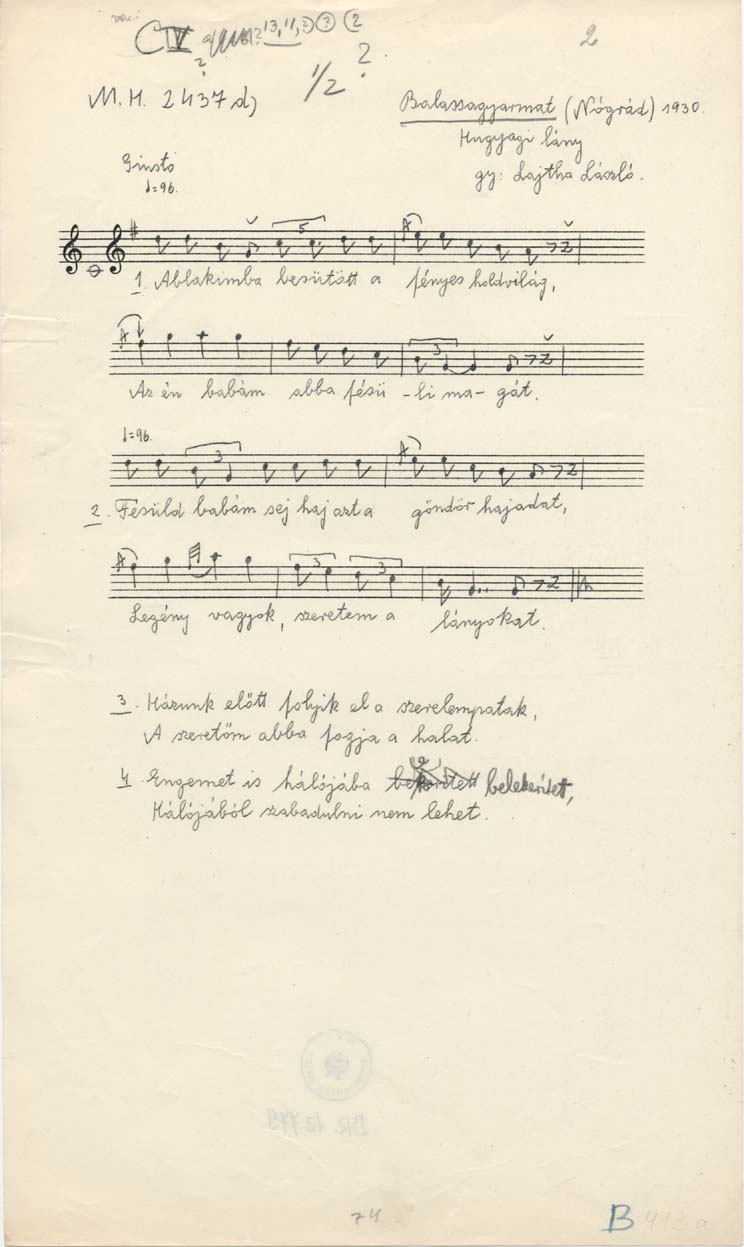 CIV 13, 11, 2) ? 2
2
?
?
1/2
M.H. 2437 d)
Balassagyarmat (Nógrád) 1930.
Hugyagi lány
gy: Lajtha László.
Giusto
♩=96.
5
1. Ablakimba besütött a fényes holdvilág,
3
Az én babám abba fésü-li ma-gát.
♩=96.
3
2. Fésüld babám sej haj azt a göndör hajadat,
3 3
Legény vagyok, szeretem a lányokat.
3. Házunk előtt folyik el a szerelempatak,
A szeretőm abba fogja a halat.
4. Engemet is hálójába belekerítet,
Hálójából szabadulni nem lehet.
BR. 12.779
74
B 413a